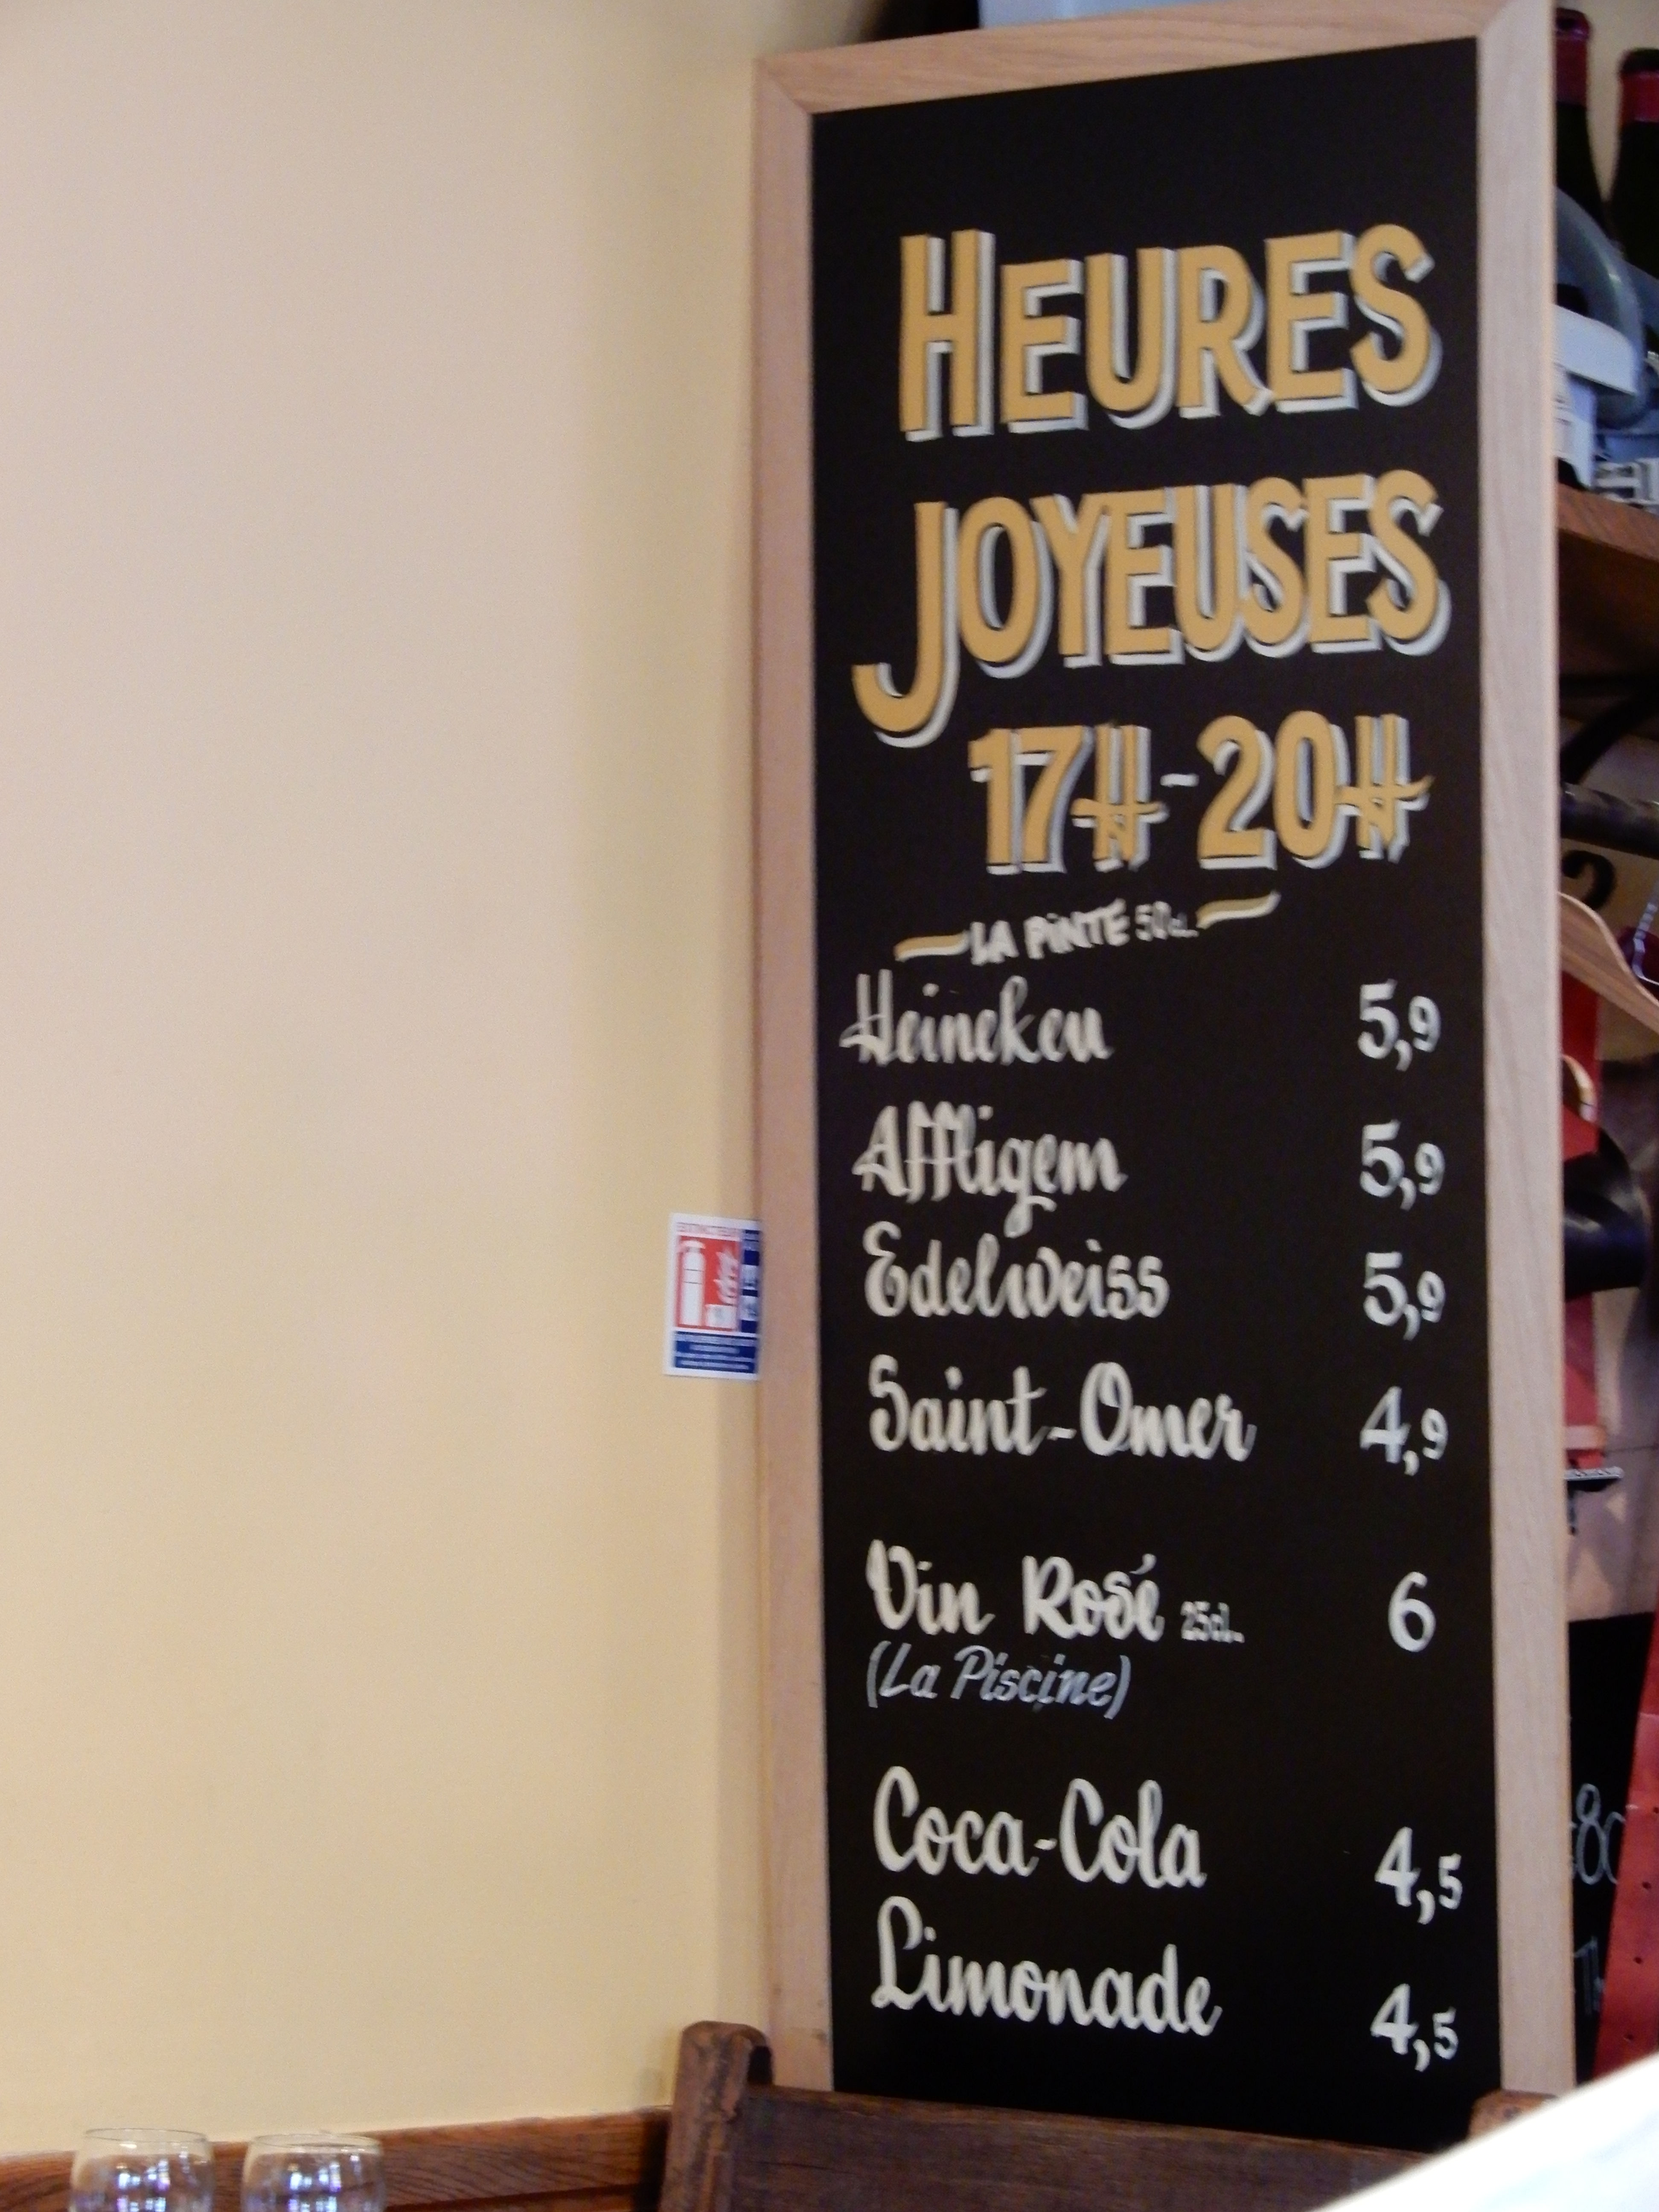 HEURES
JOYEUSES
17H-20H
LA PINTE 50cl.
Heineken 5,9
Affligem 5,9
Edelweiss 5,9
Saint-Omer 4,9
Vin Rosé 25cl. 6
(La Piscine)
Coca-Cola 4,5
Limonade 4,5
EXTINCTEUR